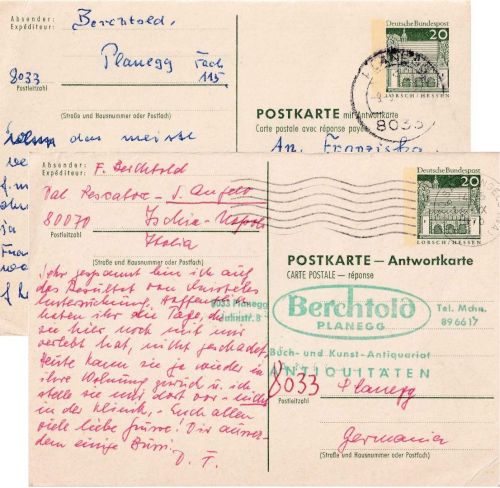 Absender:
Expéditeur:
Berchtold.
Planegg Fach
115
8033
Postleitzahl
(Straße und Hausnummer oder Postfach)
Deutsche Bundespost
20
LORSCH/HESSEN
PLANEGG
8033
POSTKARTE mit Antwortkarte
Carte postale avec réponse payée
das meiste
An Franziska
Absender:
Expéditeur:
F. Berchtold
S. Angelo
80070
Ischia-Napoli
Postleitzahl
Italia
(Straße und Hausnummer oder Postfach)
Deutsche Bundespost
20
LORSCH/HESSEN
POSTKARTE — Antwortkarte
CARTE POSTALE — réponse
Sehr gespannt bin ich auf
das Resultat von Annerles
Untersuchung. Hoffentlich
haben ihr die Tage, die
sie hier noch mit uns
verlebt hat, nicht geschadet.
Heute kann sie ja wieder in
ihre Wohnung zurück u. ich
stelle sie mir dort vor - nicht
in der Klinik. - Euch allen
viele liebe Grüsse! Dir ausser-
dem einige Bussi.
D. F.
8033 Planegg
Bahnstr. 8
Berchtold
PLANEGG
Tel. Mchn.
896617
Buch- und Kunst-Antiquariat
ANTIQUITÄTEN
8033 Planegg
Postleitzahl
Germania
(Straße und Hausnummer oder Postfach)